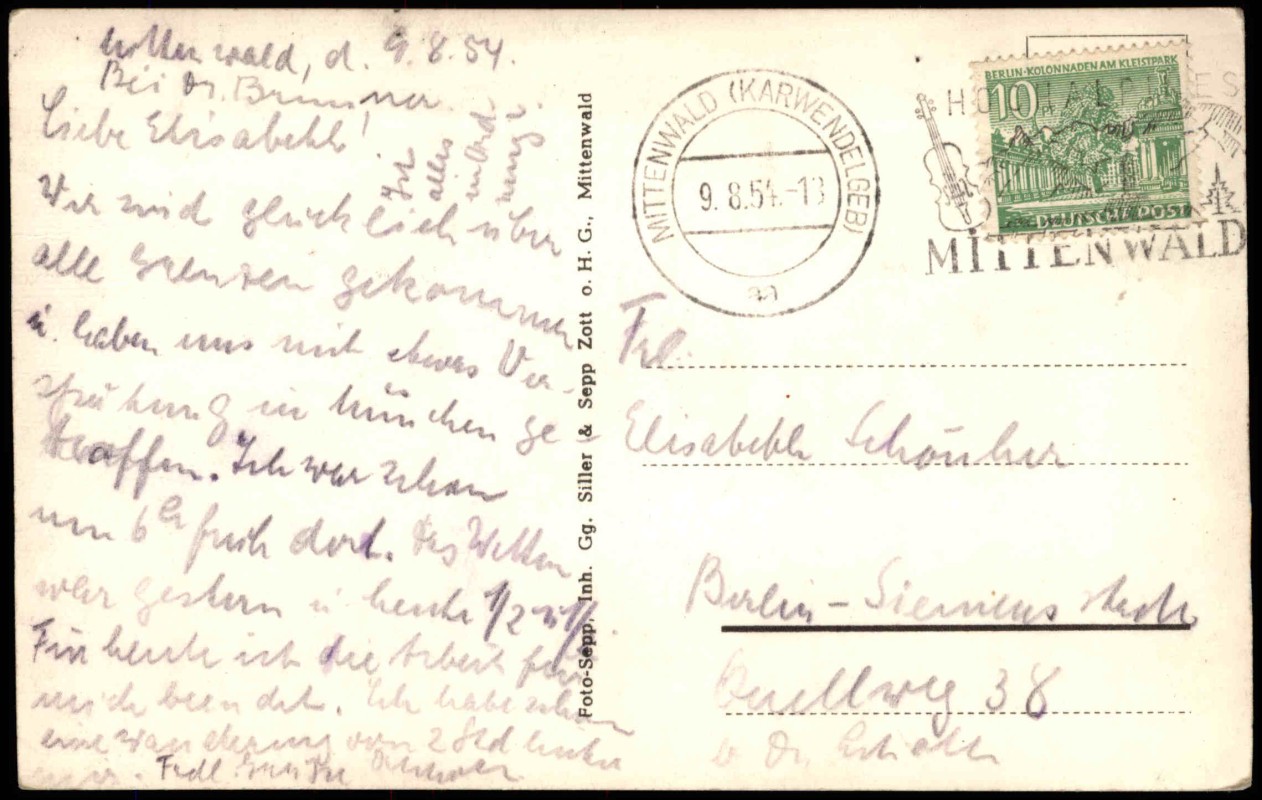 Mittenwald, d. 9.8.54.
Bei Dr. Brunner.
Liebe Elisabeth!
Ist
alles
in Ord-
nung?
Wir sind glücklich über
alle Grenzen gekommen
u. haben uns mit etwas Ver-
spätung in München ge-
troffen. Ich war schon
um 6h früh dort. Das Wetter
war gestern u heute 1/2 u 1/2
Für heute ist die Arbeit für
mich beendet. Ich habe schon
eine Wanderung von 2 Std hinter
mir. Frdl. Grüße
Foto-Sepp, Inh. Gg. Siller & Sepp Zott o. H. G., Mittenwald
MITTENWALD (KARWENDELGEB)
9.8.54.-13
aa
BERLIN·KOLONNADEN AM KLEISTPARK
10
DEUTSCHE POST
MITTENWALD
Frl.
Elisabeth
Berlin-Siemensstadt
Quellweg 38
b Dr.